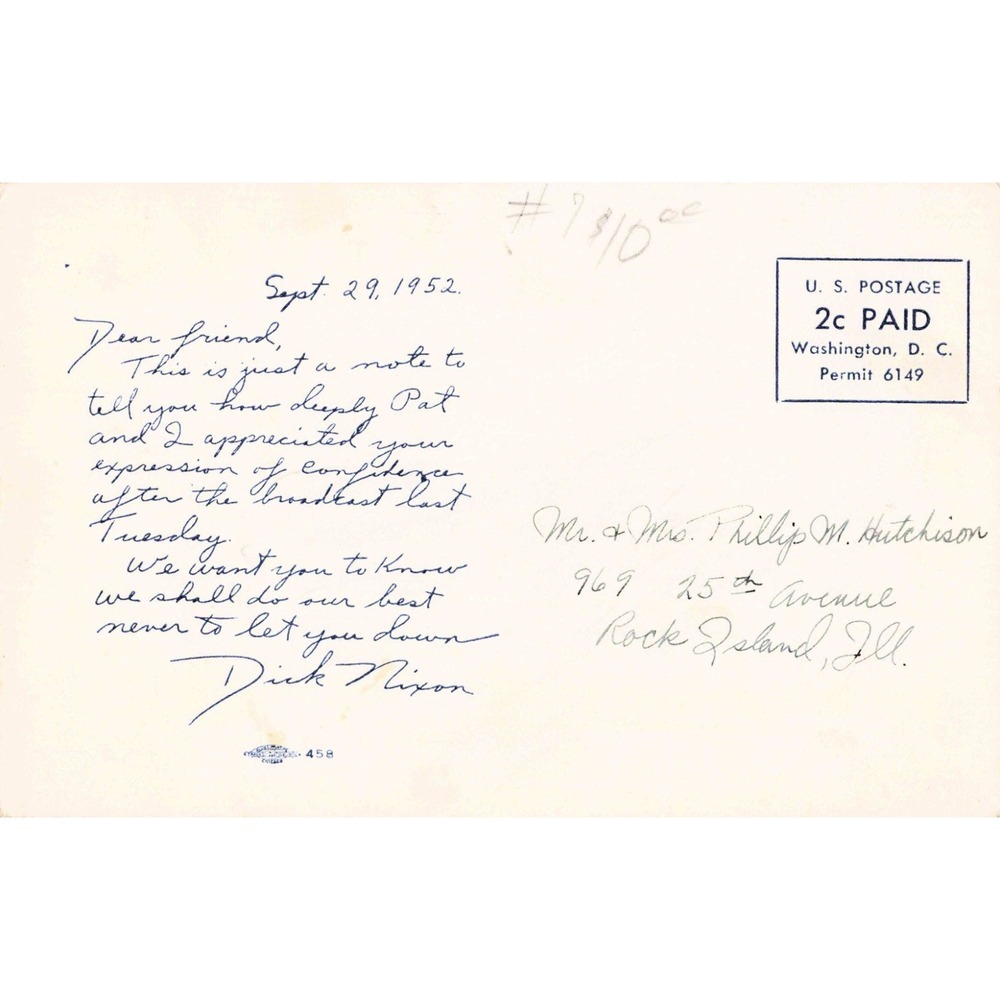 # 7 $10 00
Sept. 29, 1952.
Dear friend,
This is just a note to
tell you how deeply Pat
and I appreciated your
expression of confidence
after the broadcast last
Tuesday.
We want you to know
we shall do our best
never to let you down
Dick Nixon
458
U. S. POSTAGE
2c PAID
Washington, D. C.
Permit 6149
Mr. & Mrs. Phillip M. Hutchison
969 25th Avenue
Rock Island, Ill.